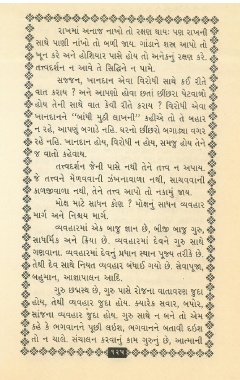 રાખમાં અનાજ નાખો તો રક્ષણ થાય; પણ રાખની
સાથે પાણી નાંખો તો બળી જાય. ગાંડાને શસ્ત્ર આપો તો
ખૂન કરે અને હોશિયાર પાસે હોય તો અનેકનું રક્ષણ કરે.
તત્ત્વદર્શન ન આવે તે સિદ્ધિને ન પામે.
સજ્જન, ખાનદાન એવા વિરોધી સાથે કઈ રીતે
વાત કરાય ? અને આપણો હોવા છતાં છીછરા પેટવાળો
હોય તેની સાથે વાત કેવી રીતે કરાય ? વિરોધી એવા
ખાનદાનને "બાંધી મુઠી લાખની" કહીએ તો તે બહાર
ન રહે, આપણું બગાડે નહિ. ઘરનો છીછરો બગાડ્યા વગર
રહે નહિ. ખાનદાન હોય, વિરોધી ન હોય, સમજુ હોય તેને
જ વાતો કહેવાય.
તત્ત્વદર્શન જેની પાસે નથી તેને તત્ત્વ ન અપાય.
જે તત્ત્વને મેળવવાની ઝંખનાવાળા નથી, સાચવવાની
કાળજીવાળા નથી, તેને તત્ત્વ આપો તો નકામું જાય.
મોક્ષ માટે સાધન કોણ ? મોક્ષનું સાધન વ્યવહાર
માર્ગ અને નિશ્ચય માર્ગ.
વ્યવહારમાં એક બાજુ જ્ઞાન છે, બીજી બાજુ ગુરુ,
સાધર્મિક અને ક્રિયા છે. વ્યવહારમાં દેવને ગુરુ સાથે
ગણવાના. વ્યવહારમાં દેવનું પ્રધાન સ્થાન પૂજ્ય તરીકે છે.
તેથી દેવ સાથે નિયત વ્યવહાર બંધાઈ ગયો છે. સેવાપૂજા,
બહુમાન, આજ્ઞાપાલન આદિ.
ગુરુ છદ્મસ્થ છે, ગુરુ પાસે રોજના વાતાવરણ જુદા
હોય, તેથી વ્યવહાર જુદા હોય. ક્યારેક સવાર, બપોર,
સાંજના વ્યવહાર જુદા હોય. ગુરુ સાથે ન બને તો એમ
કહે કે ભગવાનને પૂછી લઇશ, ભગવાનને બતાવી દઇશ
તો ન ચાલે. સંચાલન કરવાનું કામ ગુરુનું છે, આત્માની
૧૨૫